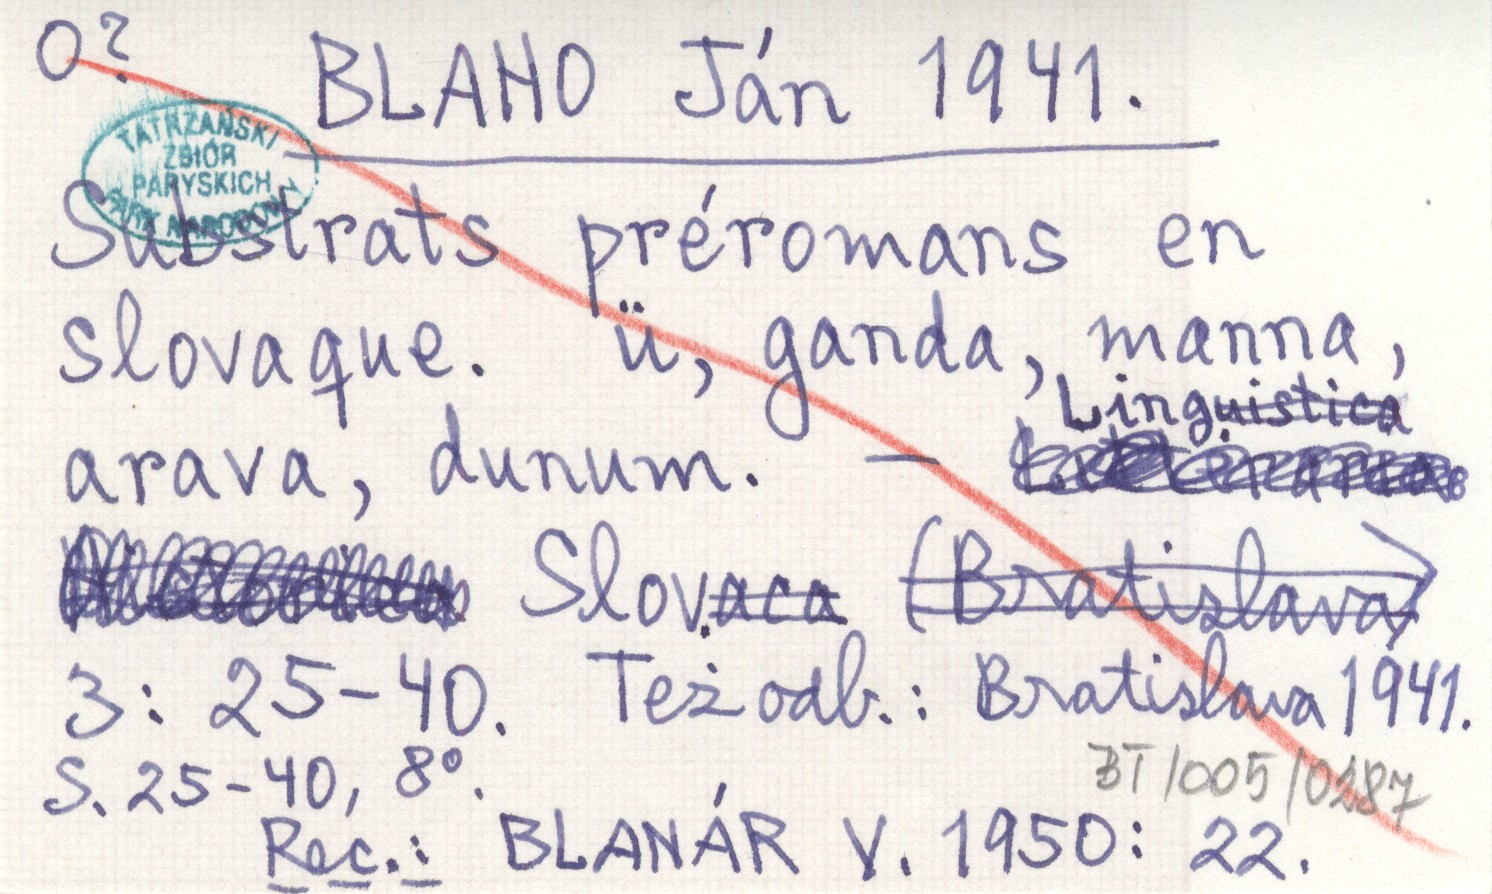 O?
BLAHO Ján 1941.
TATRZAŃSKI
ZBIÓR
PARYSKICH
PARK NARODOWY
Substrats préromans en
slovaque. ü, ganda, manna,
Linguistica
arava, dunum. —
Slovaca (Bratislava)
3: 25-40. Też odb.: Bratislava 1941.
S. 25-40, 8°.
BT/005/0287
Rec.: BLANÁR V. 1950: 22.